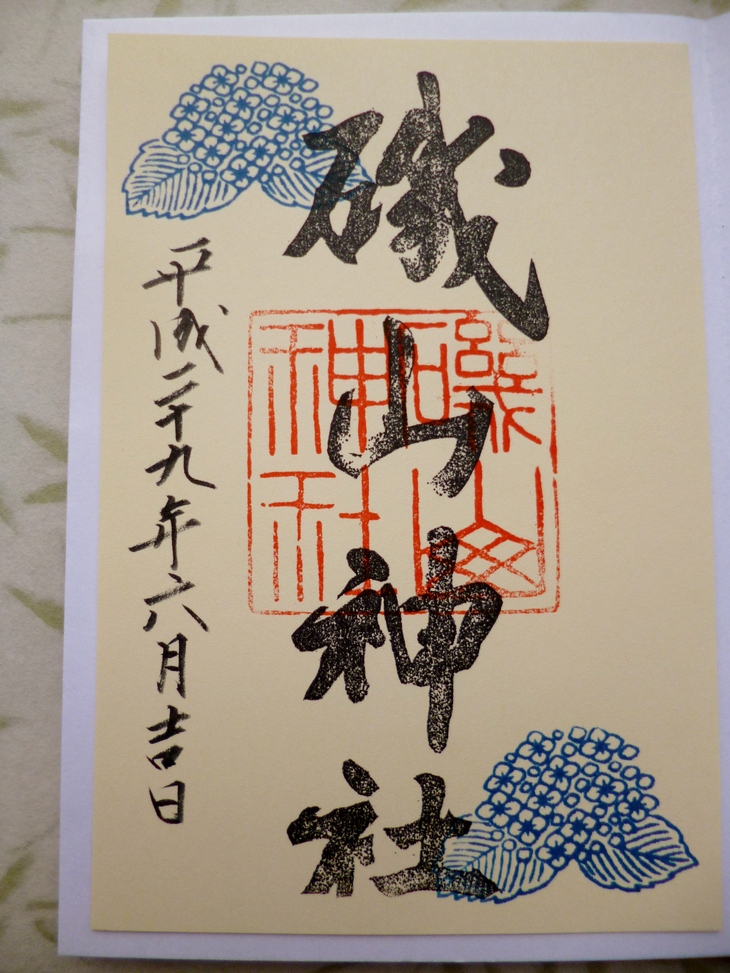 磯山神社
磯山
神社
平成二十九年六月吉日